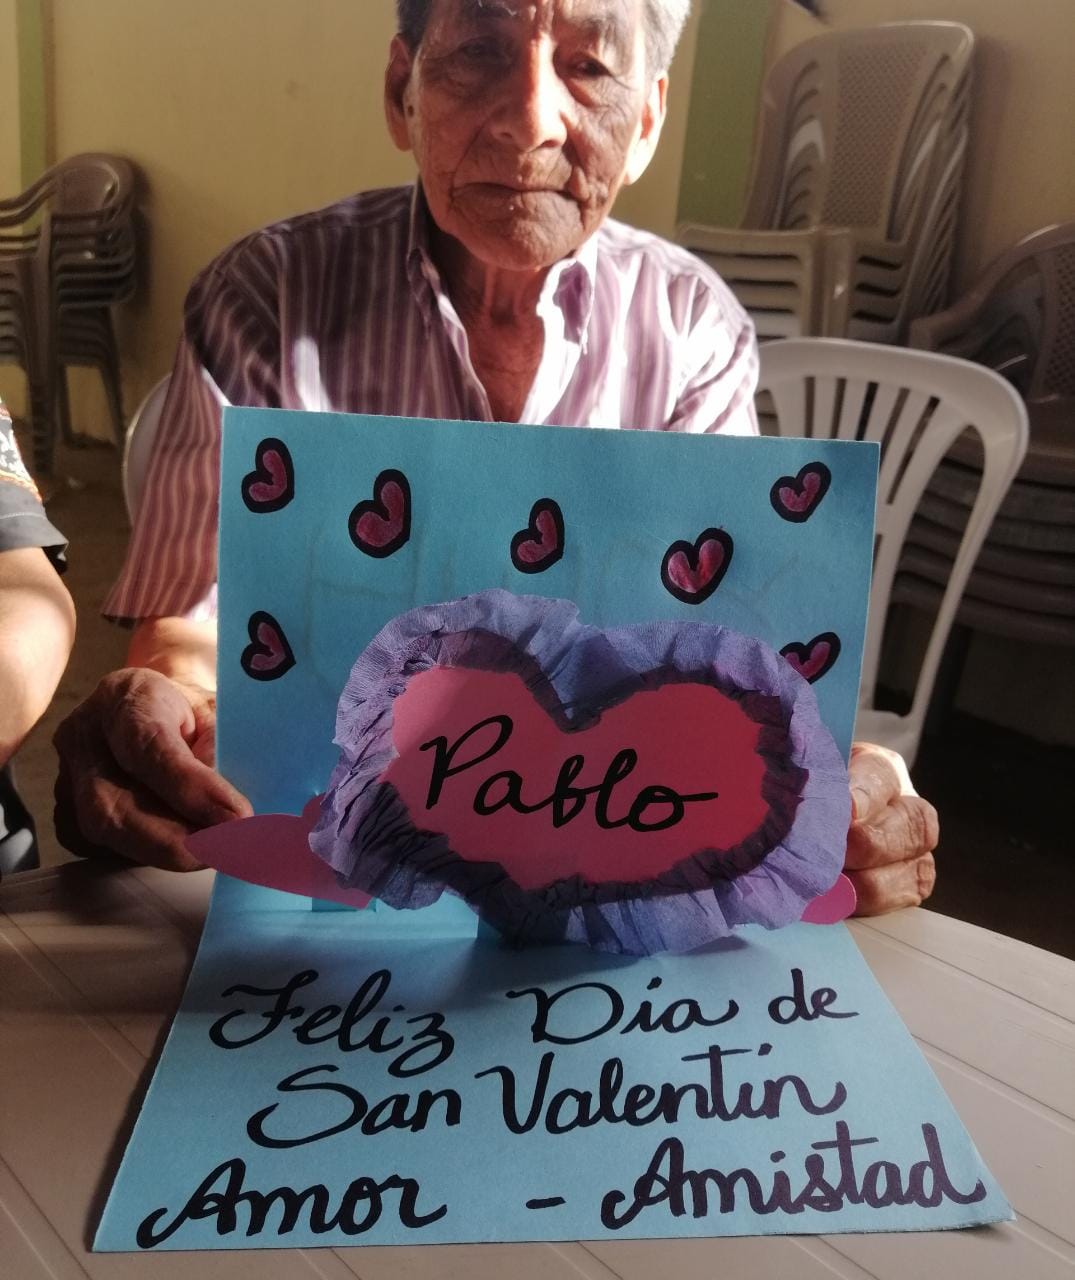 Pablo
Feliz Día de
San Valentín
Amor - Amistad